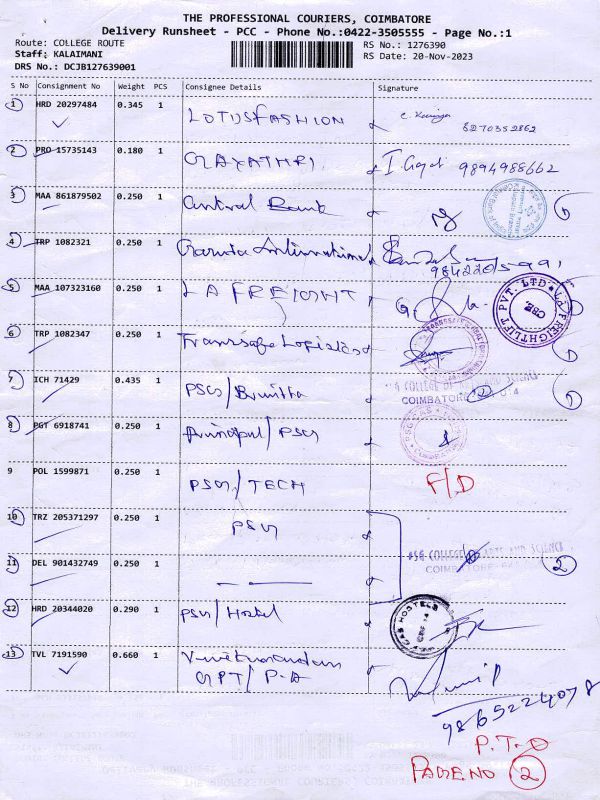 THE PROFESSIONAL COURIERS, COIMBATORE
Delivery Runsheet - PCC - Phone No.:0422-3505555 - Page No.:1
Route: COLLEGE ROUTE RS No.: 1276390
Staff: KALAIMANI RS Date: 20-Nov-2023
DRS No.: DCJB127639001
S No Consignment No Weight PCS Consignee Details Signature
1 HRD 20297484 0.345 1 LOTUS FASHION
2 PRO 15735143 0.180 1 GAYATHRI 9894988662
3 MAA 861879502 0.250 1 Central Bank 1
4 TRP 1082321 0.250 1 International
5 MAA 107323160 0.250 1 LA FREIGHT LA FREIGHTLIFT PVT. LTD CBE.
6 TRP 1082347 0.250 1 Transsafe Logistics 1
7 ICH 71429 0.435 1 PSG/ 1
COIMBATORE
8 PGT 6918741 0.250 1 Principal/PSG
9 POL 1599871 0.250 1 PSG/TECH F/D
10 TRZ 205371297 0.250 1 PSG
PSG COLLEGE OF ARTS AND SCIENCE
11 DEL 901432749 0.250 1 COIMBATORE 2
12 HRD 20344020 0.290 1 PSG/Hostel HOSTELS
13 TVL 7191590 0.660 1
GPT/P-A
9865224078
P.T.O
PAGE.NO 2